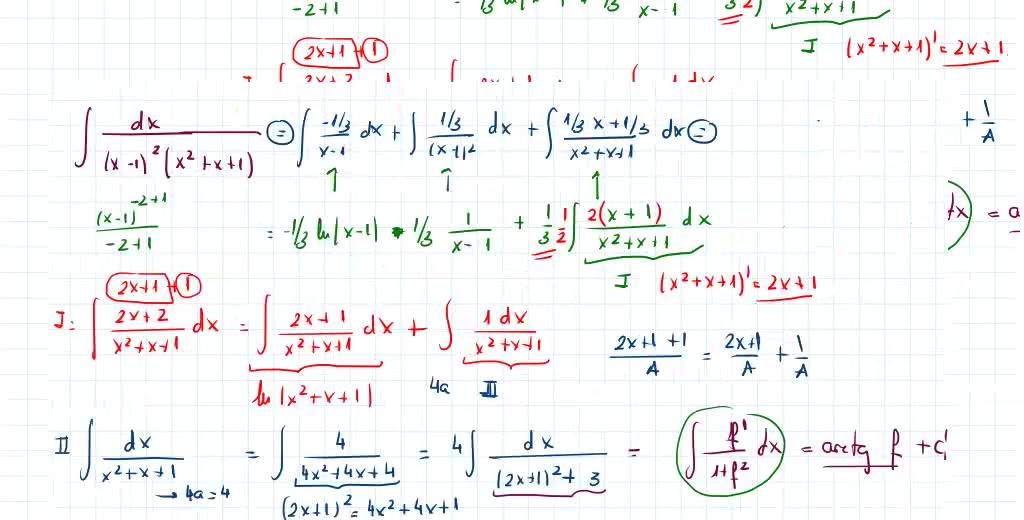 -2+1
x-1
x²+x+1
I (x²+x+1)' = 2x+1
2x+1 + 1
∫ dx / ((x-1)²(x²+x+1)) = ∫ (-1/3)/(x-1) dx + ∫ (1/3)/(x-1)² dx + ∫ (1/3 x + 1/3)/(x²+x+1) dx =
+ 1/A
(x-1)^(-2+1) / (-2+1) = -1/3 ln|x-1| - 1/3 1/(x-1) + 1/3 1/2 ∫ 2(x+1)/(x²+x+1) dx
dx) = a
I (x²+x+1)' = 2x+1
2x+1 + 1
I: ∫ (2x+2)/(x²+x+1) dx = ∫ (2x+1)/(x²+x+1) dx + ∫ 1dx/(x²+x+1)
(2x+1+1)/A = (2x+1)/A + 1/A
ln|x²+x+1| 4a II
II ∫ dx/(x²+x+1) = ∫ 4/(4x²+4x+4) = 4 ∫ dx/((2x+1)²+3) = ∫ f'/(1+f²) dx = arctg f + C
→ 4a=4
(2x+1)² = 4x²+4x+1